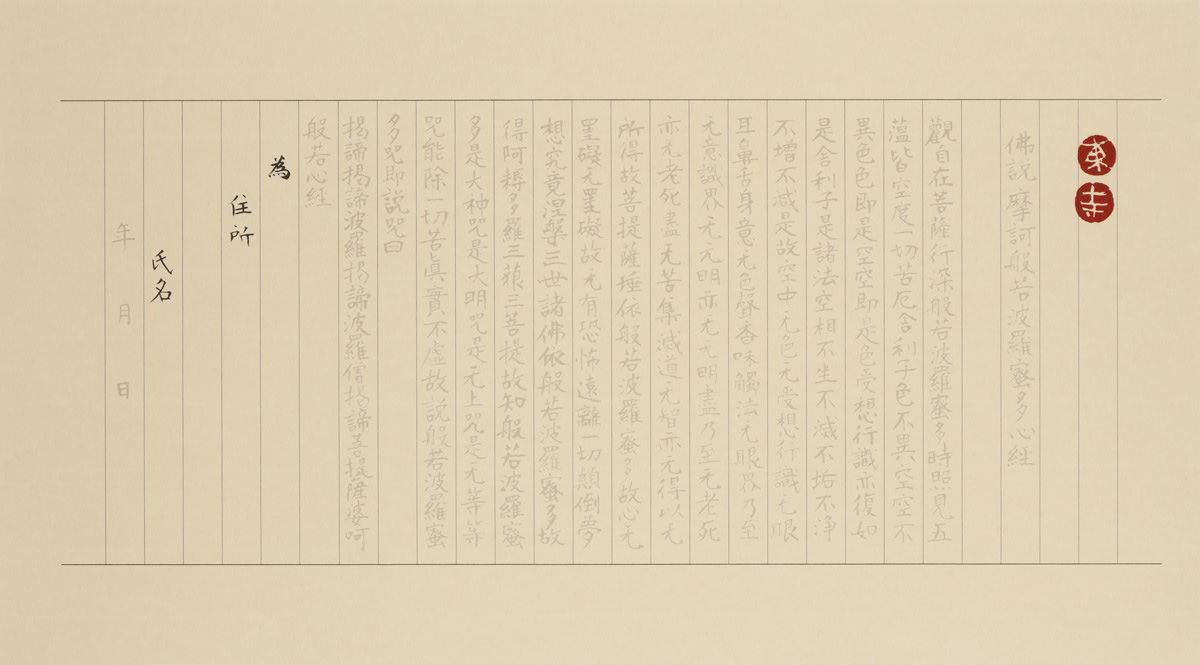 東寺
佛説摩訶般若波羅蜜多心經
觀自在菩薩行深般若波羅蜜多時照見五
蘊皆空度一切苦厄舎利子色不異空空不
異色色即是空空即是色受想行識亦復如
是舎利子是諸法空相不生不滅不垢不浄
不増不减是故空中无色无受想行識无眼
耳鼻舌身意无色聲香味觸法无眼界乃至
无意識界无无明亦无无明盡乃至无老死
亦无老死盡无苦集滅道无智亦无得以无
所得故菩提薩埵依般若波羅蜜多故心无
罣礙无罣礙故无有恐怖遠離一切顛倒夢
想究竟涅槃三世諸佛依般若波羅蜜多故
得阿耨多羅三藐三菩提故知般若波羅蜜
多是大神咒是大明咒是无上咒是无等等
咒能除一切苦眞實不虚故説般若波羅蜜
多咒即説咒曰
揭諦揭諦波羅揭諦波羅僧揭諦菩提薩婆呵
般若心經
為
住所
氏名
年 月 日